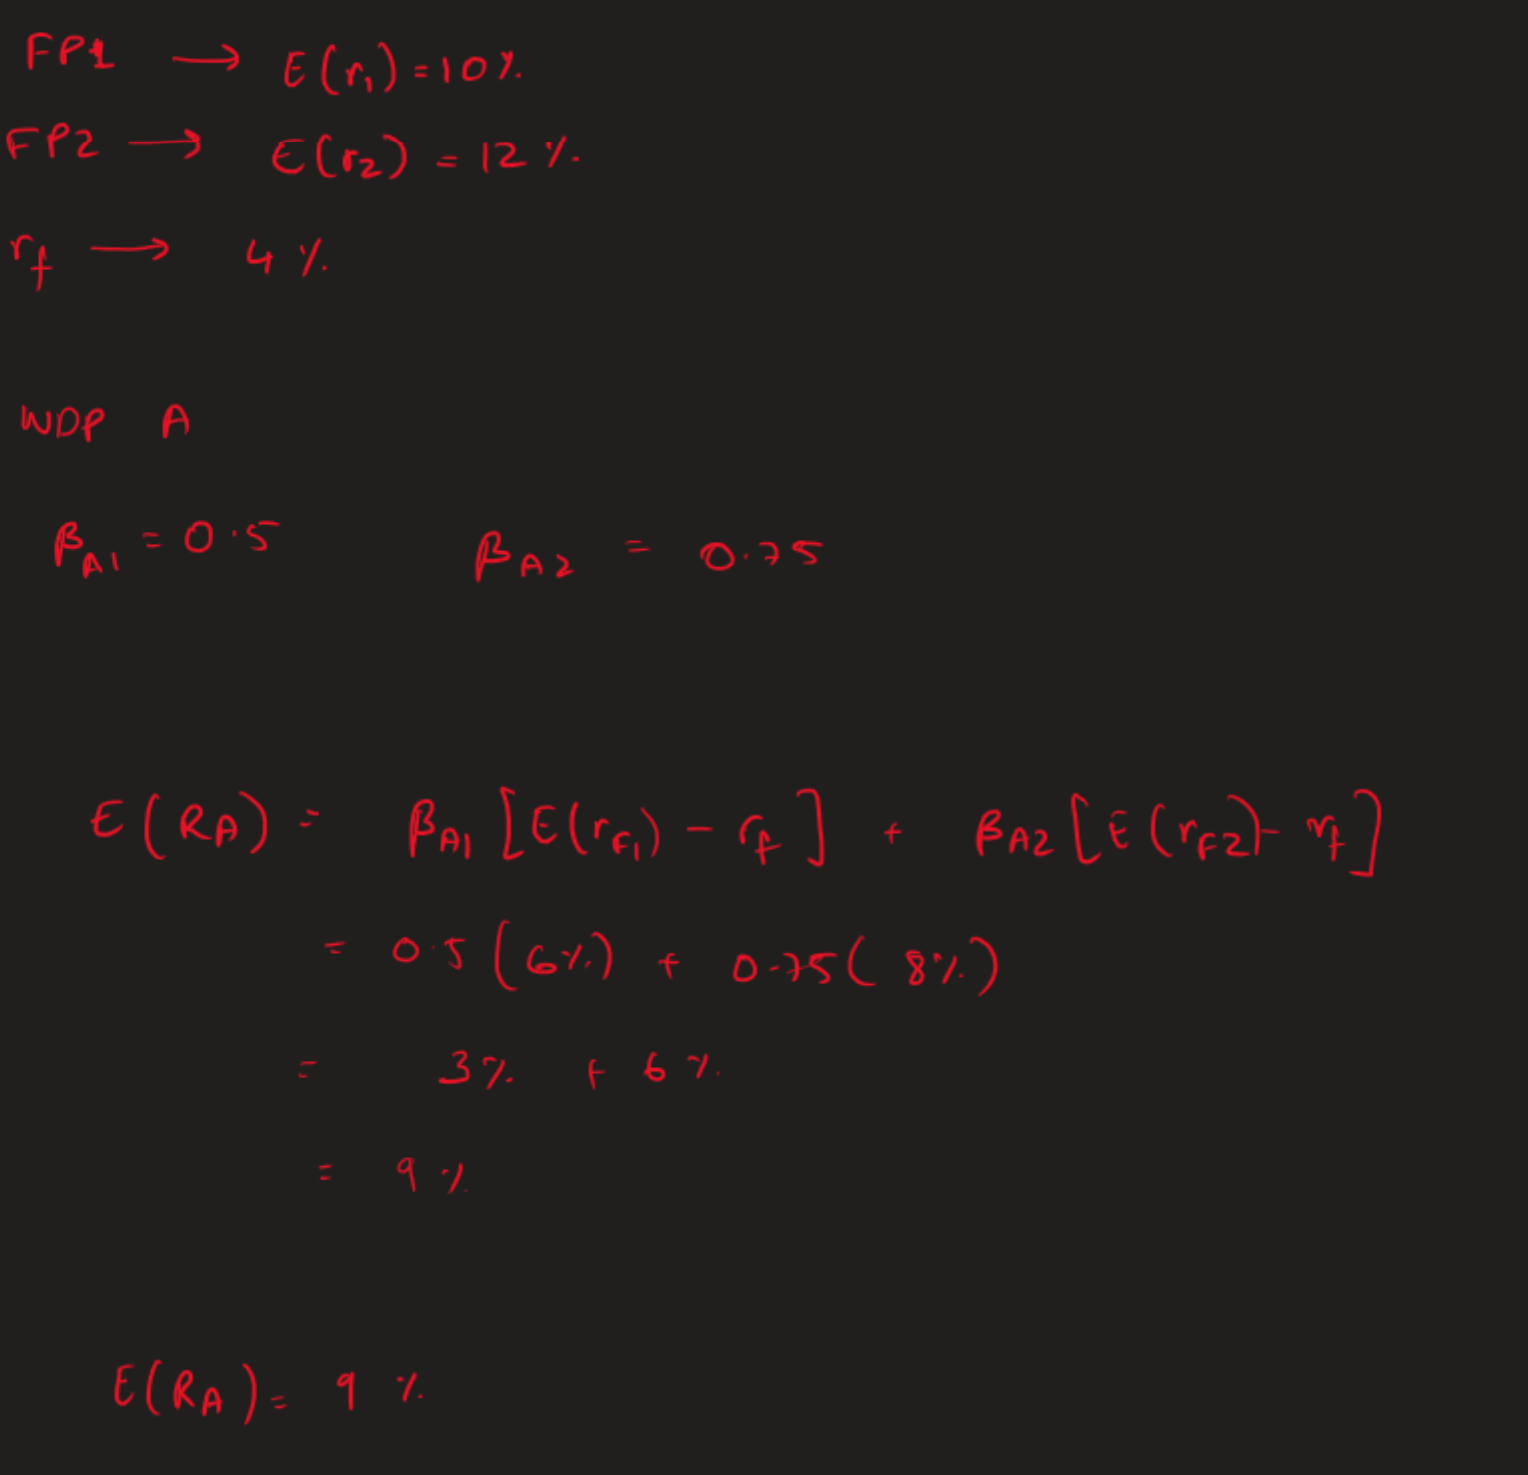 FP1 → E(r₁) = 10%
FP2 → E(r₂) = 12%
r_f → 4%
WDP A
β_A1 = 0.5 β_A2 = 0.75
E(R_A) = β_A1 [E(r_F1) - r_f] + β_A2 [E(r_F2) - r_f]
= 0.5 (6%) + 0.75 (8%)
= 3% + 6%
= 9%
E(R_A) = 9%